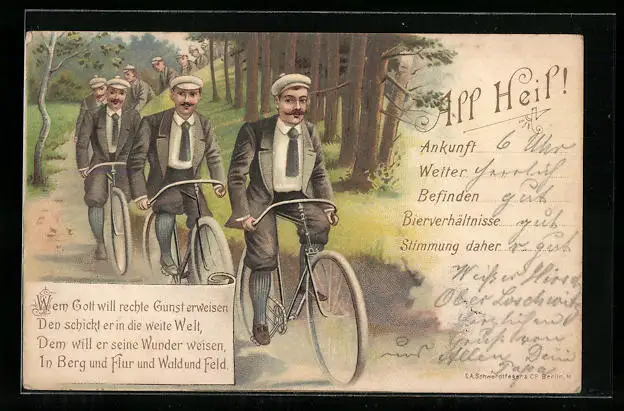 All Heil!
Ankunft 6 Uhr
Wetter herrlich
Befinden gut
Bierverhältnisse gut
Stimmung daher v gut
Weißer Hirsch
Ober Loschwitz
Herzlichen
Gruß von
uns Allen Dein
Papa
Wem Gott will rechte Gunst erweisen
Den schickt er in die weite Welt,
Dem will er seine Wunder weisen,
In Berg und Flur und Wald und Feld.
C.A. Schwerdtfeger & Co. Berlin, N.